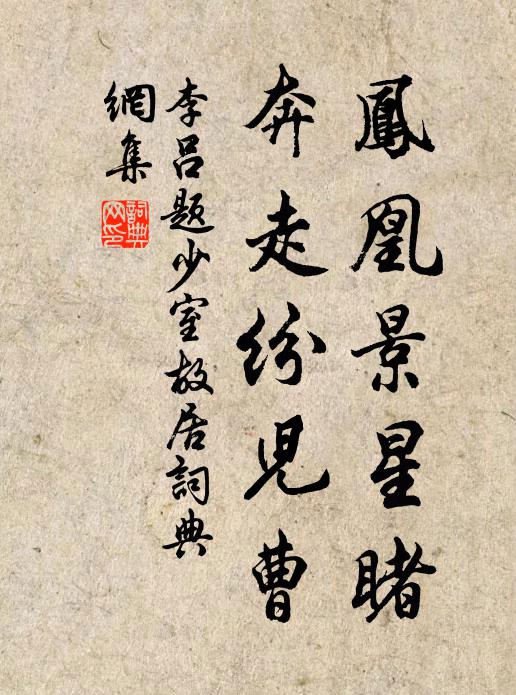 鳳凰景星睹
奔走紛児曹
李呂題少室故居詞典
網集
詞典
网印